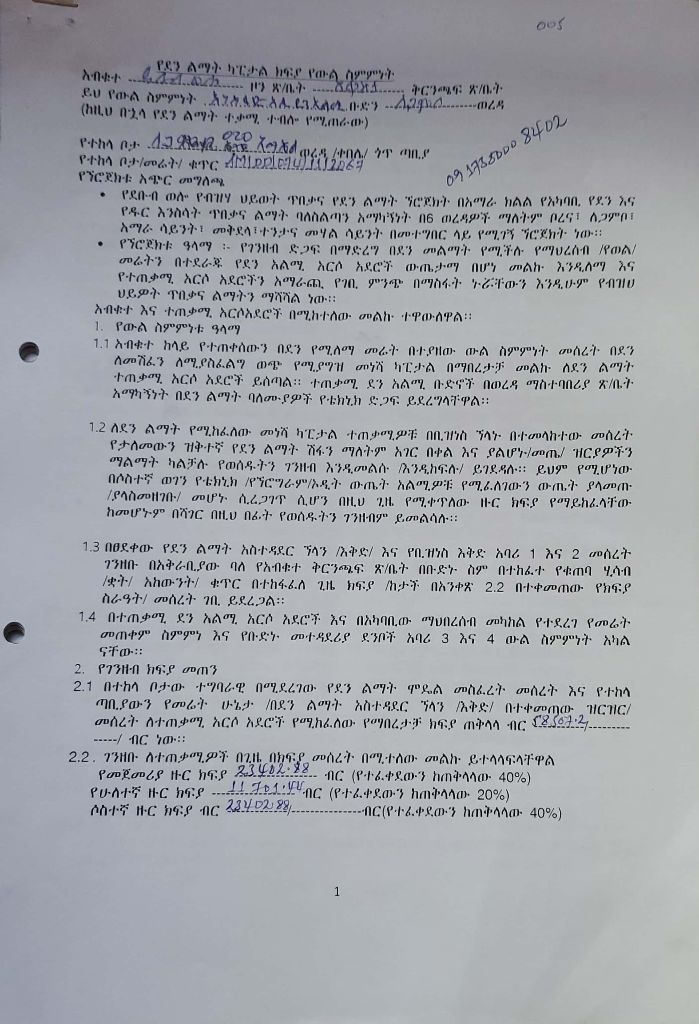 005
የደን ልማት ካፒታል ክፍያ የውል ስምምነት
አብቁተ ዞን ጽ/ቤት ቅርንጫፍ ጽ/ቤት
ይህ የውል ስምምነት ቡድን ወረዳ
(ከዚህ በኋላ የደን ልማት ተቃሚ ተብሎ የሚጠራው)
የተከላ ቦታ 020 ወረዳ /ቀበሌ/ ጎጥ ጣቢያ
የተከላ ቦታ/መሬት/ ቁጥር
የኘሮጀክቱ አጭር መግለጫ
• የደቡብ ወሎ የብዝሃ ህይወት ጥበቃና የደን ልማት ኘሮጀክት በአማራ ክልል የአካባቢ የደን እና
የዱር እንስሳት ጥበቃና ልማት ባለስልጣን አማካኝነት በ6 ወረዳዎች ማለትም ቦረና፣ ለጋምቦ፣
አማራ ሳይንት፣ መቅደላ፣ተንታና መሃል ሳይንት በመተግበር ላይ የሚገኝ ኘሮጀክት ነው፡፡
• የኘሮጀክቱ ዓላማ ፡- የገንዘብ ድጋፍ በማድረግ በደን መልማት የሚችሉ የማህረሰብ /የወል/
መሬትን በተደራጁ የደን አልሚ አርሶ አደሮች ውጤታማ በሆነ መልክ እንዲለማ እና
የተጠቃሚ አርሶ አደሮችን አማራጪ የገቢ ምንጭ በማስፋት ኑሯቸውን እንዲሁም የብዝሀ
ህይዎት ጥበቃና ልማትን ማሻሻል ነው፡፡
አብቁተ እና ተጠቃሚ አርሶአደሮች በሚከተለው መልኩ ተዋውለዋል፡፡
1. የውል ስምምነቱ ዓላማ
1.1 አብቁተ ከላይ የተጠቀሰውን በደን የሚለማ መሬት በተያዘው ውል ስምምነት መሰረት በደን
ለመሸፈን ለሚያስፈልግ ወጭ የሚያግዝ መነሻ ካፒታል በማበረታቻ መልኩ ለደን ልማት
ተጠቃሚ አርሶ አደሮች ይሰጣል፡፡ ተጠቃሚ ደን አልሚ ቡድኖች በወረዳ ማስተባበሪያ ጽ/ቤት
አማካኝነት በደን ልማት ባለሙያዎች የቴክኒክ ድጋፍ ይደረግላቸዋል፡፡
1.2 ለደን ልማት የሚከፈለው መነሻ ካፒታል ተጠቃሚዎቹ በቢዝነስ ኘላኑ በተመላከተው መሰረት
የታለመውን ዝቅተኛ የደን ልማት ሽፋን ማለትም አገር በቀል እና ያልሆኑ/መጤ/ ዝርያዎችን
ማልማት ካልቻሉ የወሰዱትን ገንዘብ እንዲመልሱ /እንዲከፍሉ/ ይገደዳሉ፡፡ ይህም የሚሆነው
በሶስተኛ ወገን የቴክኒክ /የኘሮግራም/ኦዲት ውጤት አልሚዎቹ የሚፈለገውን ውጤት ያላመጡ
/ያላስመዘገቡ/ መሆኑ ሲረጋገጥ ሲሆን በዚህ ጊዜ የሚቀጥለው ዙር ክፍያ የማይከፈላቸው
ከመሆኑም በሻገር በዚህ በፊት የወሰዱትን ገንዘብም ይመልሳሉ፡፡
1.3 በፀደቀው የደን ልማት አስተዳደር ኘላን /እቅድ/ እና የቢዝነስ እቅድ አባሪ 1 እና 2 መሰረት
ገንዘቡ በአቅራቢያው ባለ የአብቁተ ቅርንጫፍ ጽ/ቤት በቡድኑ ስም በተከፈተ የቁጠባ ሂሳብ
/ቋት/ አከውንት/ ቁጥር በተከፋፈለ ጊዜ ክፍያ /ከታች በአንቀጽ 2.2 በተቀመጠው የክፍያ
ስራዓት/ መሰረት ገቢ ይደረጋል፡፡
1.4 በተጠቃሚ ደን አልሚ አርሶ አደሮች እና በአካባቢው ማህበረሰብ መካከል የተደረገ የመሬት
መጠቀም ስምምነ እና የቡድኑ መተዳደሪያ ደንቦች አባሪ 3 እና 4 ውል ስምምነት አካል
ናቸው፡፡
2. የገንዘብ ክፍያ መጠን
2.1 በተከላ ቦታው ተግባራዊ በሚደረገው የደን ልማት ሞዴል መስፈረት መሰረት እና የተከላ
ጣቢያውን የመሬት ሁኔታ /በደን ልማት አስተዳደር ኘላን /እቅድ/ በተቀመጠው ዝርዝር/
መሰረት ለተጠቃሚ አርሶ አደሮች የሚከፈለው የማበረታቻ ክፍያ ጠቅላላ ብር 58507.2
-----/ ብር ነው፡፡
2.2 . ገንዘቡ ለተጠቃሚዎች በጊዜ በክፍያ መሰረት በሚተለው መልኩ ይተላላፍላቸዋል
የመጀመሪያ ዙር ክፍያ 23402.88 ብር (የተፈቀደውን ከጠቅላላው 40%)
የሁለተኛ ዙር ክፍያ 11701.44 ብር (የተፈቀደውን ከጠቅላላው 20%)
ሶስተኛ ዙር ክፍያ ብር 23402.88/ ብር(የተፈቀደውን ከጠቅላላው 40%)
1